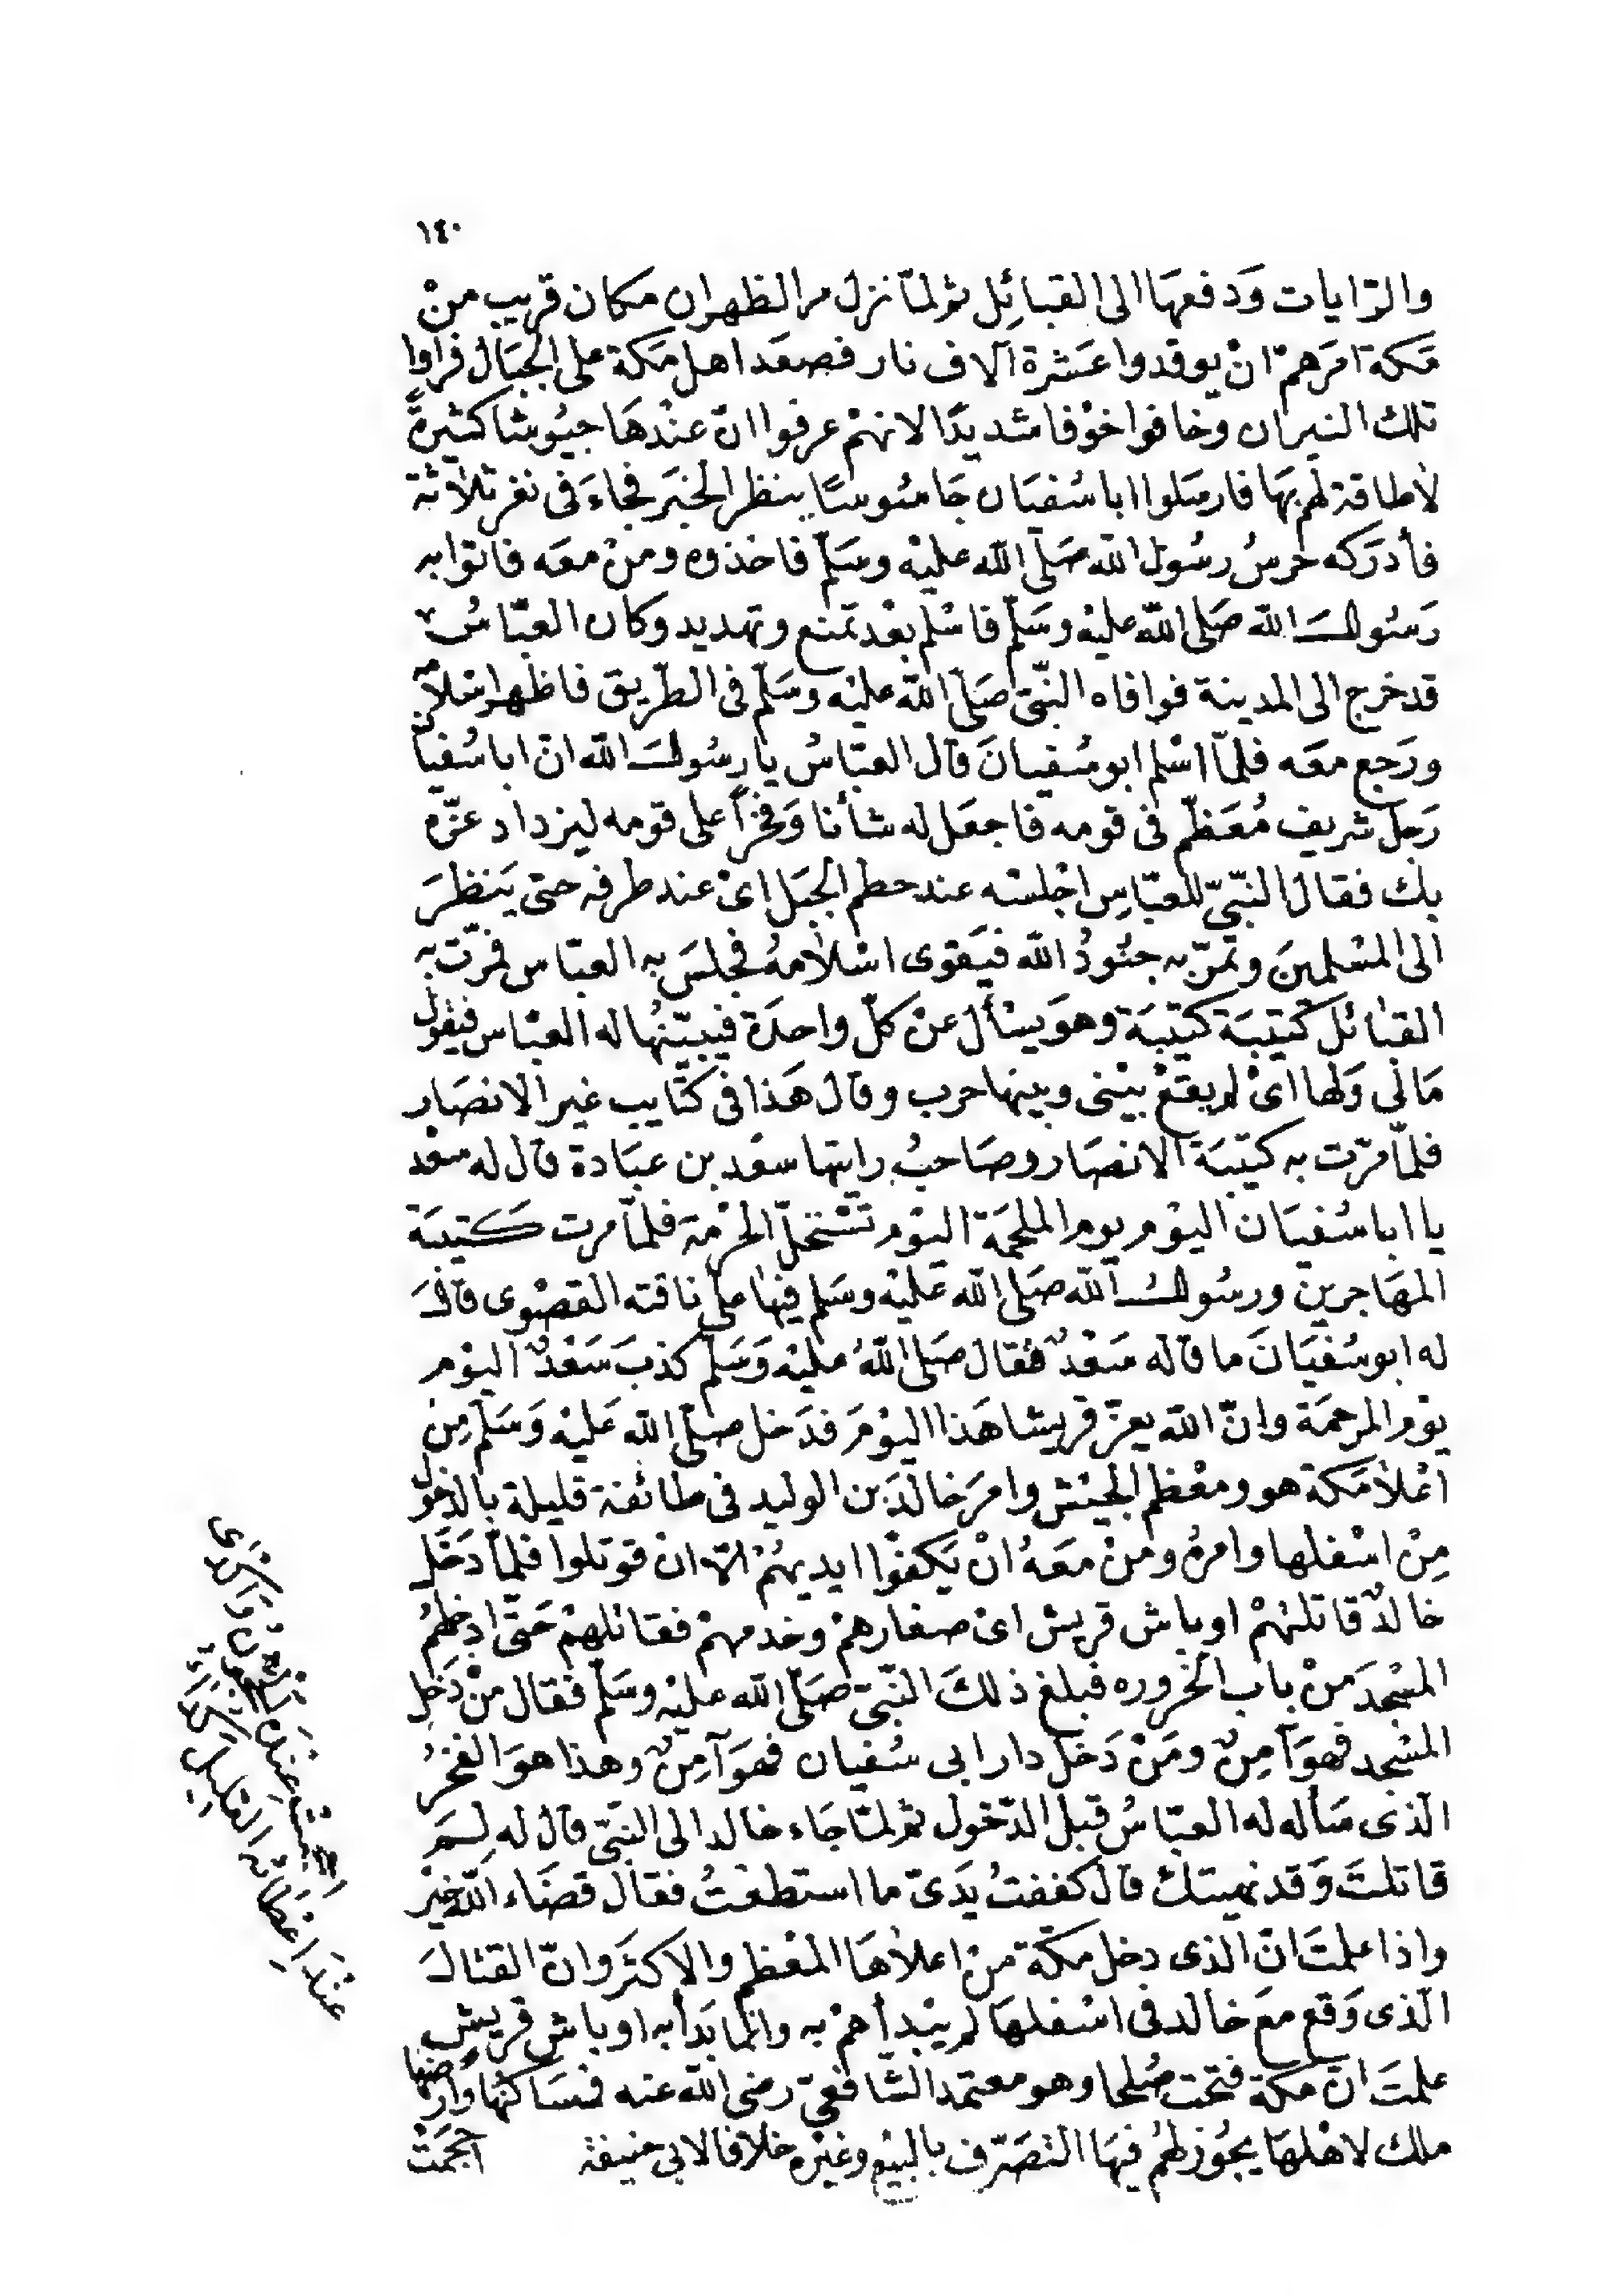 ١٤٠
والرّايات وَدفعهَا الى القبائِل ثم لمّا نزل مر الظهران مكان قريب منْ
مَكة امَرَهمْ انْ يوقدوا عَشرة آلاف نار فصعَد اهل مَكة على الجبَال فراوا
تلك النيران وخافوا خوْفا شديدًا لانهمْ عرفوا انّ عنْدهَا جيُوشا كثيرةً
لاطاقة لهم بهَا فارسَلوا ابا سُفيَان جَاسُوسًا ينظر الخبَر فجاءَ فى نفر ثلاثة
فأدرَكه حرسُ رسُول الله صَلّى الله عليْه وسَلّم فاخذوه ومنْ معَه فاتوْا به
رَسُولَ الله صَلى الله عليْه وسَلّم فاسْلم بعْد تمنع وتهديد وكان العبّاسُ
قد خرج الى المدينة فوافاه النّبىّ صَلّى الله عليْه وسَلّم فى الطّريق فاظهر اسْلامه
ورَجع معَه فلمّا اسْلم ابو سُفيانَ قال العبّاسُ يا رسُولَ الله انّ ابا سُفيان
رَجل شريف مُعَظّم فى قومه فاجعَل له شأنا وَفخرًا على قومه ليزداد عزّه
بك فقال النّبيّ للعبّاسِ اجْلسْه عند حطم الجبَل اىْ عند طرفه حتى يَنظرَ
الى المسْلمينَ وتمرّ به جنُودُ الله فيَقوى اسْلامهُ فجلسَ به العبّاس فمرّت به
القبائل كتيبَة كتيبَة وهوَ يسْأل عنْ كلّ واحدَة فيبيّنهُا له العبّاس فيقول
مَالى وَلها اىْ لم يقعْ بيْنى وبينها حرب وقال هَذا فى كتايب غير الانصَار
فلمّا مرّت به كتيبَة الانصَار وصَاحبُ رايتها سعْد بن عبَادة قال له سعْد
يا ابا سُفيَان اليوْم يوم الملحمَة اليوْم تسْتحلّ الحرْمة فلمّا مرت كتيبَة
المهَاجرين ورسُولُ الله صَلى الله عليْه وسَلم فيهَا على ناقته القصْوى قالَ
له ابو سُفيَانَ ما قاله سَعْدٌ فقال صَلى اللهُ عليْه وَسَلّم كذبَ سَعْدٌ اليوْم
يوْم المرحمَة وانّ الله يعزّ قريشا هَذا اليوْمَ فدَخل صلّى الله عَليْه وَسَلّم مِنْ
اعْلا مَكة هو ومعْظم الجيْش وامرَ خالدَ بن الوليد فى طائفة قليلة بالدخول
مِنْ اسْفلها وامرهُ ومنْ معَهُ انْ يَكفوْا ايديهُمْ الاّ انْ قوتلوا فلمّا دَخَل
خالدٌ قاتلهُمْ اوباش قريش اىْ صغارهمْ وخدمهمْ فقاتلهمْ حَتّى ادخلهُمُ
المسْجدَ منْ باب الحزوره فبلغ ذلكَ النّبىّ صَلّى الله عليْه وسَلّم فقال منْ دَخل
المسْجد فهوَ آمِنٌ ومَنْ دَخلَ دار ابى سُفيان فهوَ آمِنٌ وهذا هوَ الفخرُ
الّذى سَأله له العبّاسُ قبل الدّخول ثم لمّا جَاء خالد الى النبىّ قال له لِمَ
قاتلتَ وَقد نهيتك قال كففتُ يدَىّ ما استطعْتُ فقال قضَاء الله خيْر
واذا علمتَ انّ الذى دخل مكّة منْ اعلاهَا المعْظم والاكثَر وانّ القتالَ
الّذى وَقع معَ خالد فى اسْفلهَا لم يبْدأهمْ به وانّما بَدأ به اوباش قريش
علمتَ انّ مكة فتحت صُلحا وهو معتمد الشّافعيّ رضى الله عنه فمسَاكنُها وارْضها
ملك لاهْلهَا يجُوز لهُمْ فيهَا التصَرّف بالبيْع وغيْره خلافا لابى حنيفة
احجمَتْ
احجمتْ عِنْدَ
عنْدَ اعْطائه القليل